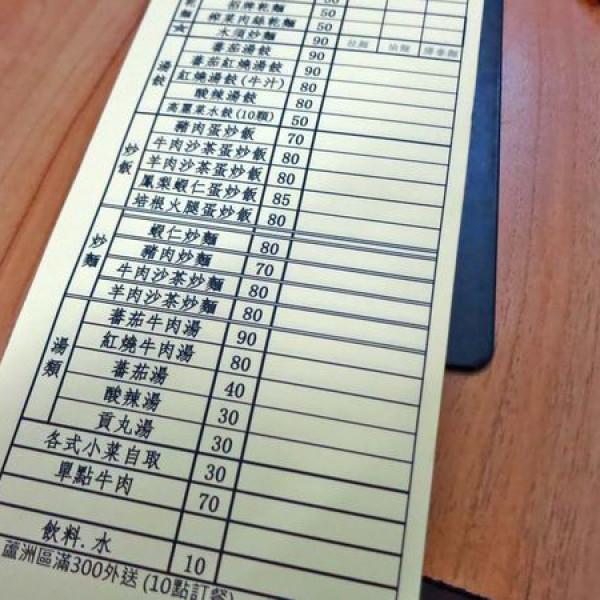 乾麵
招牌乾麵 50
榨菜肉絲乾麵 50
木須炒麵 90
湯餃
蕃茄湯餃 90
蕃茄紅燒湯餃 90
紅燒湯餃(牛汁) 80
酸辣湯餃 80
高麗菜水餃(10顆) 50
炒飯
豬肉蛋炒飯 70
牛肉沙茶蛋炒飯 80
羊肉沙茶蛋炒飯 80
鳳梨蝦仁蛋炒飯 85
培根火腿蛋炒飯 80
炒麵
蝦仁炒麵 80
豬肉炒麵 70
牛肉沙茶炒麵 80
羊肉沙茶炒麵 80
湯類
蕃茄牛肉湯 90
紅燒牛肉湯 80
蕃茄湯 40
酸辣湯 30
貢丸湯 30
各式小菜自取 30
單點牛肉 70
飲料.水 10
蘆洲區滿300外送 (10點訂餐)